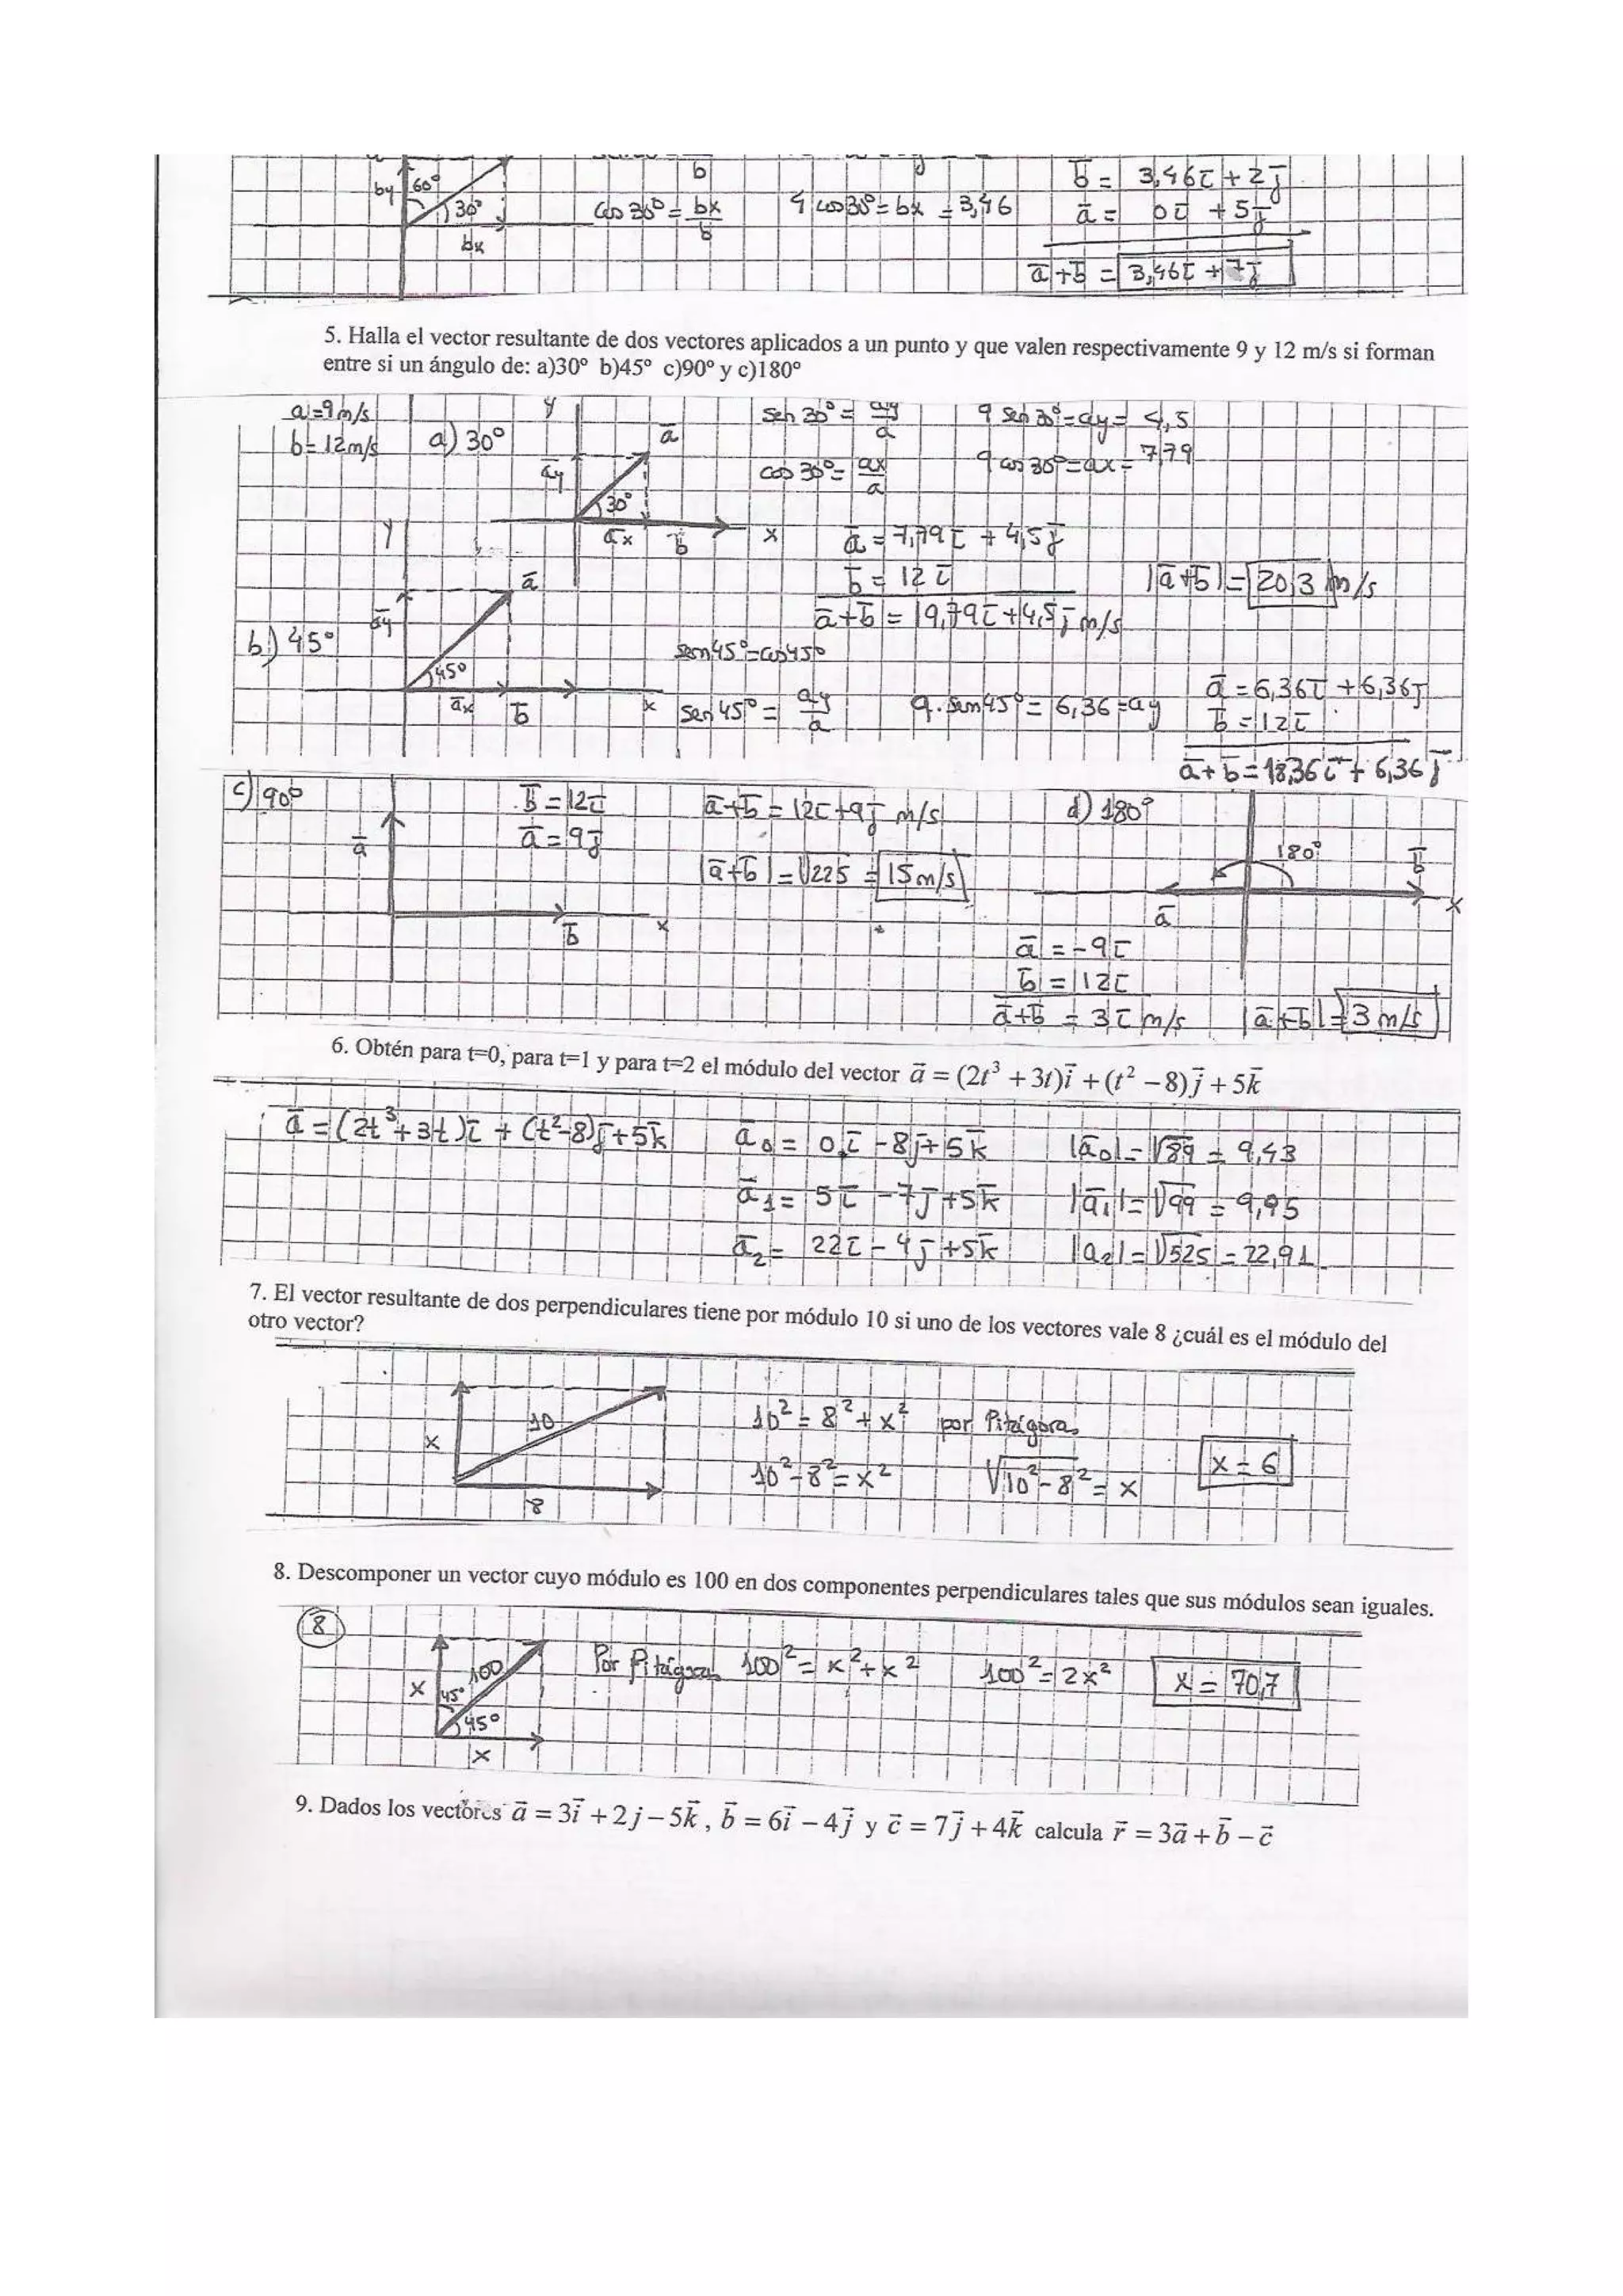 by 60° 30° bx
b
cos 30° = bx/b 4 cos 30° = bx = 3,46
b̄ = 3,46 ī + 2 j̄
ā = 0 ī + 5 j̄
ā + b̄ = 3,46 ī + 7 j̄
5. Halla el vector resultante de dos vectores aplicados a un punto y que valen respectivamente 9 y 12 m/s si forman
entre si un ángulo de: a)30° b)45° c)90° y c)180°
a = 9 m/s
b = 12 m/s
a) 30°
y ā āy 30° āx b̄ x
sen 30° = ay/a 9 sen 30° = ay = 4,5
cos 30° = ax/a 9 cos 30° = ax = 7,79
ā = 7,79 ī + 4,5 j̄
b̄ = 12 ī
ā + b̄ = 19,79 ī + 4,5 j̄ m/s
|ā + b̄| = 20,3 m/s
b) 45°
y ā āy 45° āx b̄ x
sen 45° = cos 45°
sen 45° = ay/a 9 · sen 45° = 6,36 = ay
ā = 6,36 ī + 6,36 j̄
b̄ = 12 ī
ā + b̄ = 18,36 ī + 6,36 j̄
c) 90°
ā b̄ x
b̄ = 12 ī
ā = 9 j̄
ā + b̄ = 12 ī + 9 j̄ m/s
|ā + b̄| = √225 = 15 m/s
d) 180°
180° b̄ ā x
ā = -9 ī
b̄ = 12 ī
ā + b̄ = 3 ī m/s |ā + b̄| = 3 m/s
6. Obtén para t=0, para t=1 y para t=2 el módulo del vector a⃗ = (2t³ + 3t)i⃗ + (t² − 8)j⃗ + 5k⃗
ā = (2t³ + 3t) ī + (t² - 8) j̄ + 5 k̄
ā₀ = 0 ī - 8 j̄ + 5 k̄ |ā₀| = √89 = 9,43
ā₁ = 5 ī - 7 j̄ + 5 k̄ |ā₁| = √99 = 9,95
ā₂ = 22 ī - 4 j̄ + 5 k̄ |a₂| = √525 = 22,91
7. El vector resultante de dos perpendiculares tiene por módulo 10 si uno de los vectores vale 8 ¿cuál es el módulo del
otro vector?
x 10 8
10² = 8² + x² por Pitágoras
10² - 8² = x² √10² - 8² = x x = 6
8. Descomponer un vector cuyo módulo es 100 en dos componentes perpendiculares tales que sus módulos sean iguales.
8
x 100 45° 45° x
Por Pitágoras 100² = x² + x² 100² = 2x² x = 70,7
9. Dados los vectores a⃗ = 3i⃗ + 2j − 5k⃗ , b⃗ = 6i⃗ − 4j⃗ y c⃗ = 7j⃗ + 4k⃗ calcula r⃗ = 3a⃗ + b⃗ − c⃗